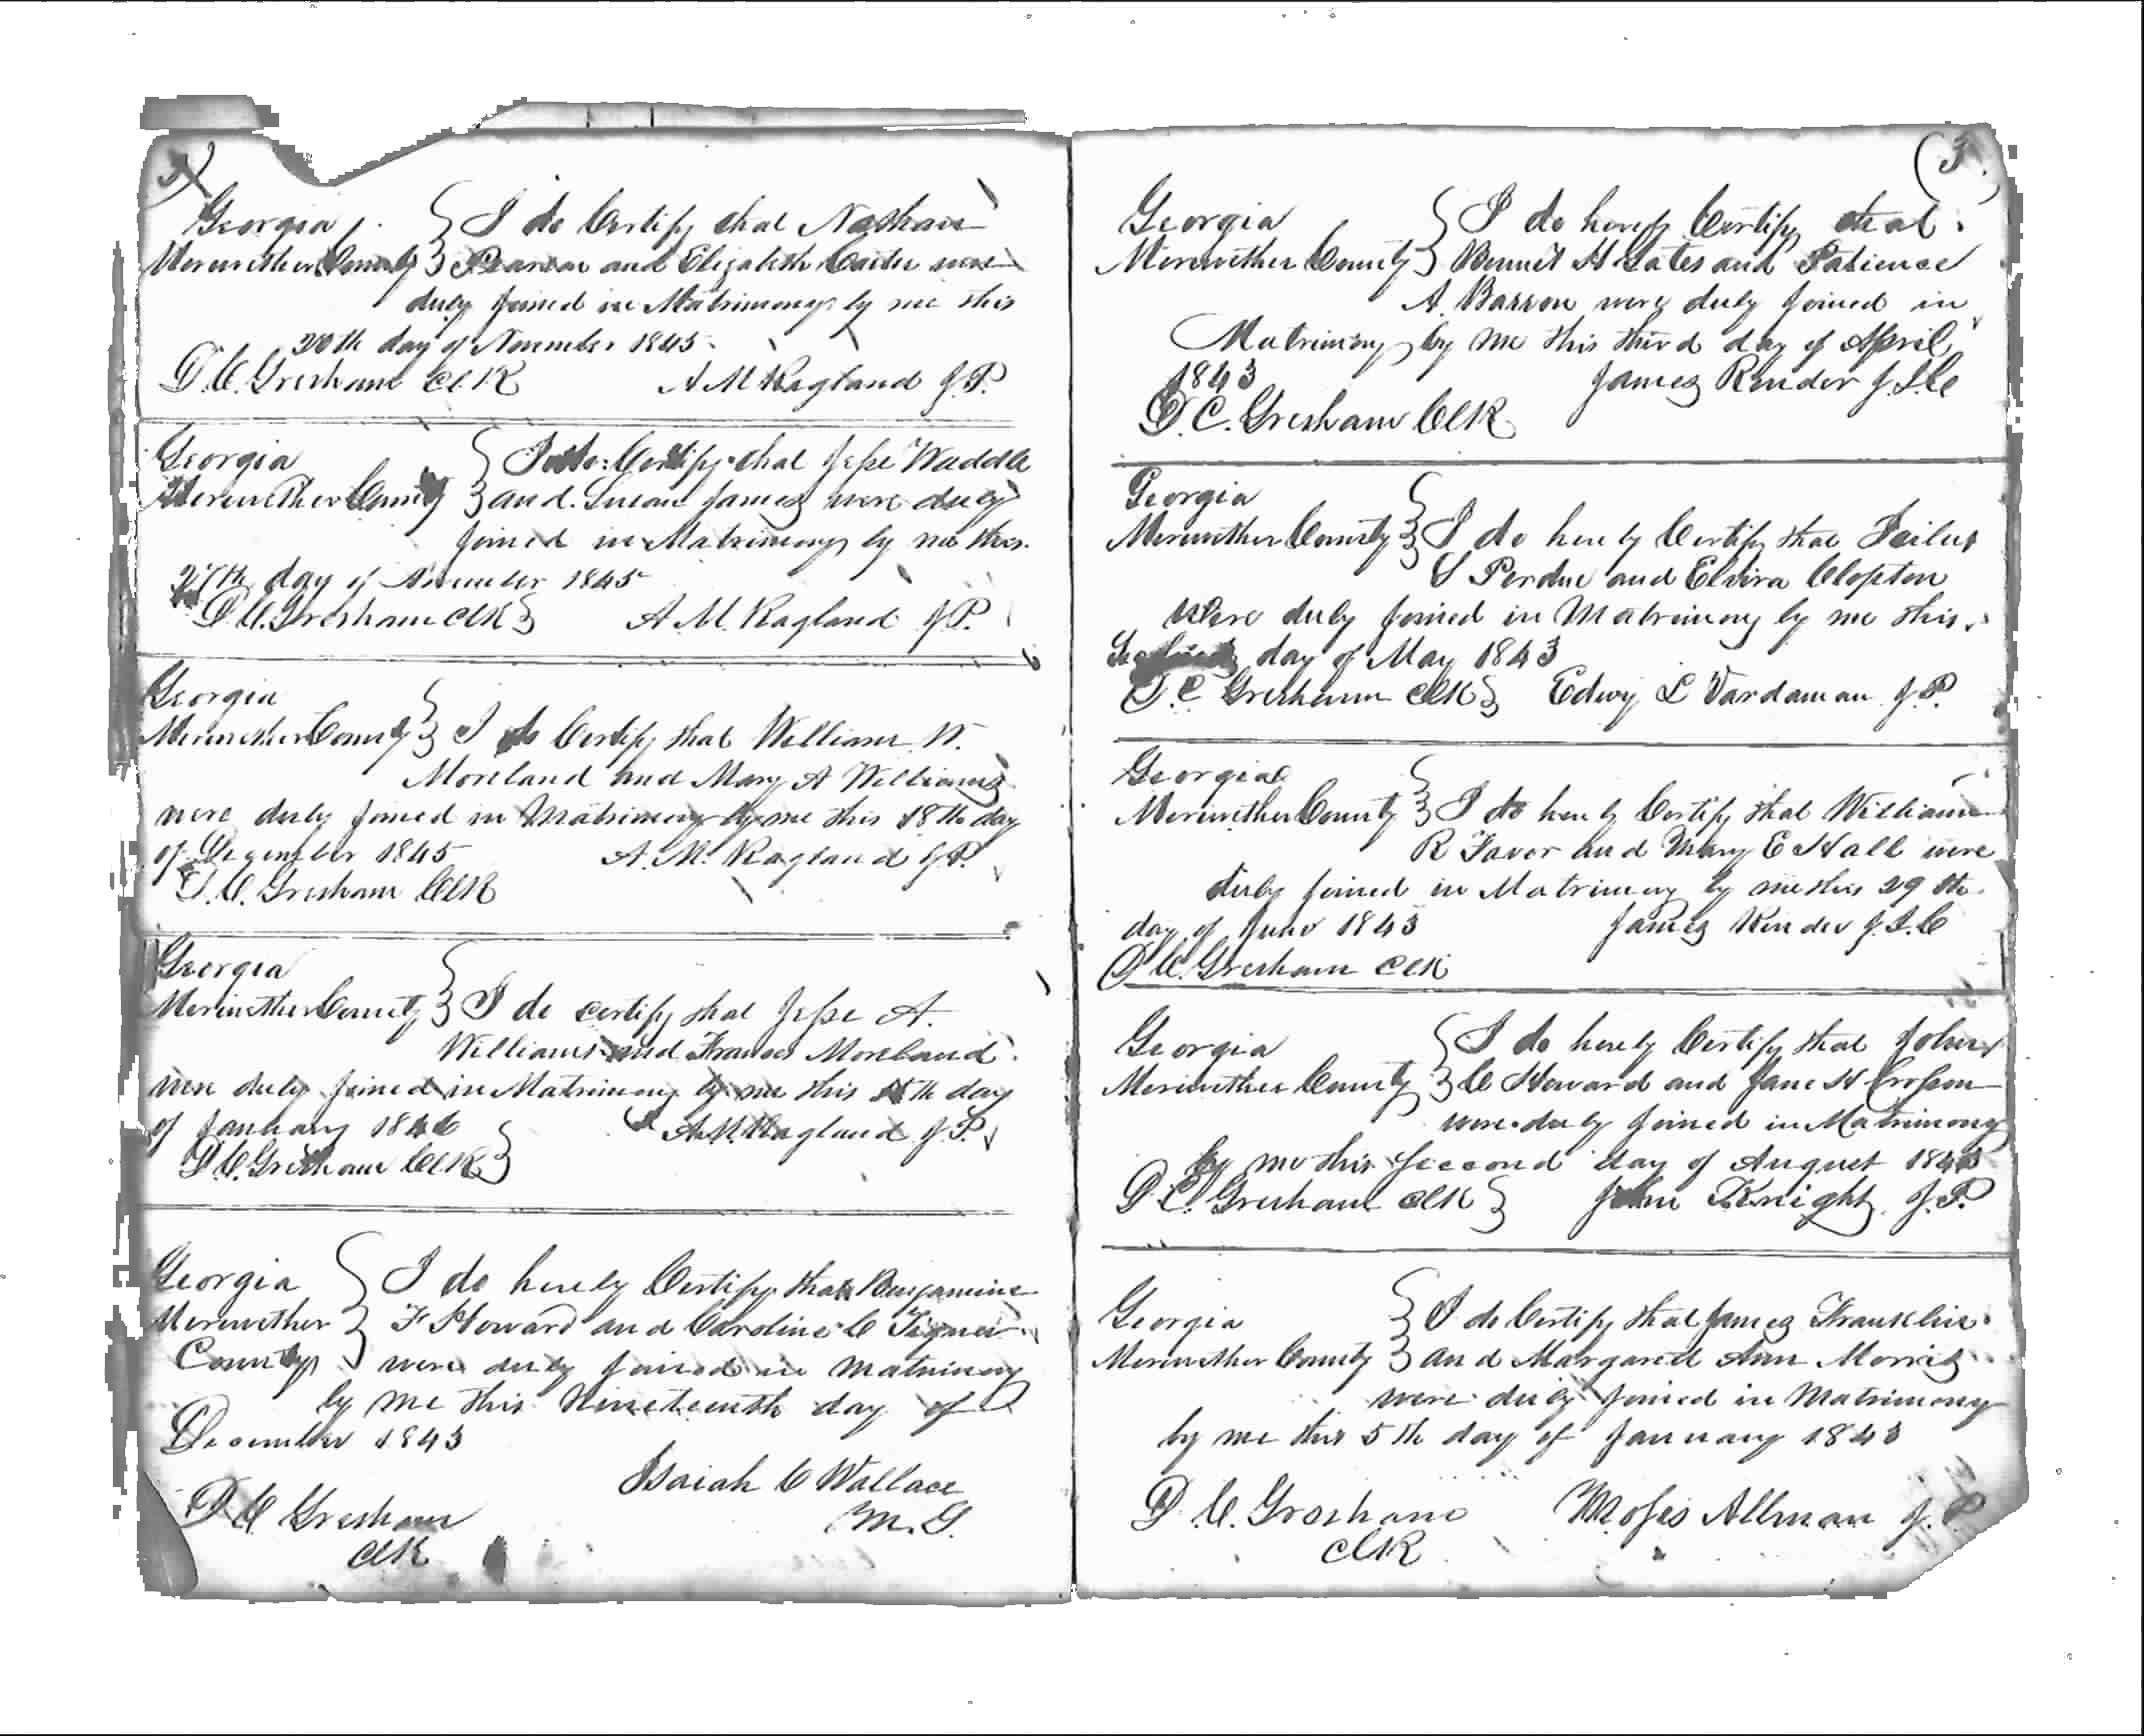 Georgia } I do Certify that Nathan
Meriwether County } Pearson and Elizabeth Carter were
duly joined in Matrimony by me this
20th day of November 1845
D. C. Gresham Clk A M Ragland J. P.
Georgia } I do Certify that Jesse Waddle
Meriwether County } and Susan James were duly
joined in Matrimony by me this
27th day of November 1845
D. C. Gresham Clk } A. M. Ragland J. P.
Georgia }
Meriwether County } I do Certify that William W.
Moreland and Mary A Williams
were duly joined in Matrimony by me this 18th day
of December 1845 A. M. Ragland J. P.
D. C. Gresham Clk
Georgia }
Meriwether County } I do certify that Jesse A.
Williams and Frances Moreland
were duly joined in Matrimony by me this th day
of January 1846 A. M. Ragland J. P.
D C Gresham Clk }
Georgia } I do hereby Certify that Benjamine
Meriwether } F Howard and Caroline C Tigner
County } were duly joined in Matrimony
by me this Nineteenth day of
December 1843
Isaiah C Wallace
D C Gresham M. G.
Clk
(3)
Georgia } I do hereby Certify that
Meriwether County } Bennet H Gates and Patience
A. Barron were duly joined in
Matrimony by me this third day of April
1843 James Render J. I. C
D. C. Gresham Clk
Georgia }
Meriwether County } I do hereby Certify that
S Perdue and Elvira Clopton
were duly joined in Matrimony by me this
Second day of May 1843
D. C Gresham Clk } Edwy L Vardaman J. P.
Georgia }
Meriwether County } I do hereby Certify that William
R Favor and Mary E Hall were
duly joined in Matrimony by me this 29th
day of June 1843 James Render J. I. C
D C. Gresham Clk
Georgia } I do hereby Certify that John
Meriwether County } C Howard and Jane H
were duly joined in Matrimony
by me this Second day of August 1843
D C. Gresham Clk } John Knight J. P.
Georgia } I do Certify that James Franklin
Meriwether County } and Margaret Ann Morris
were duly joined in Matrimony
by me this 5th day of January 1843
D. C. Gresham Moses Allman J. P
Clk